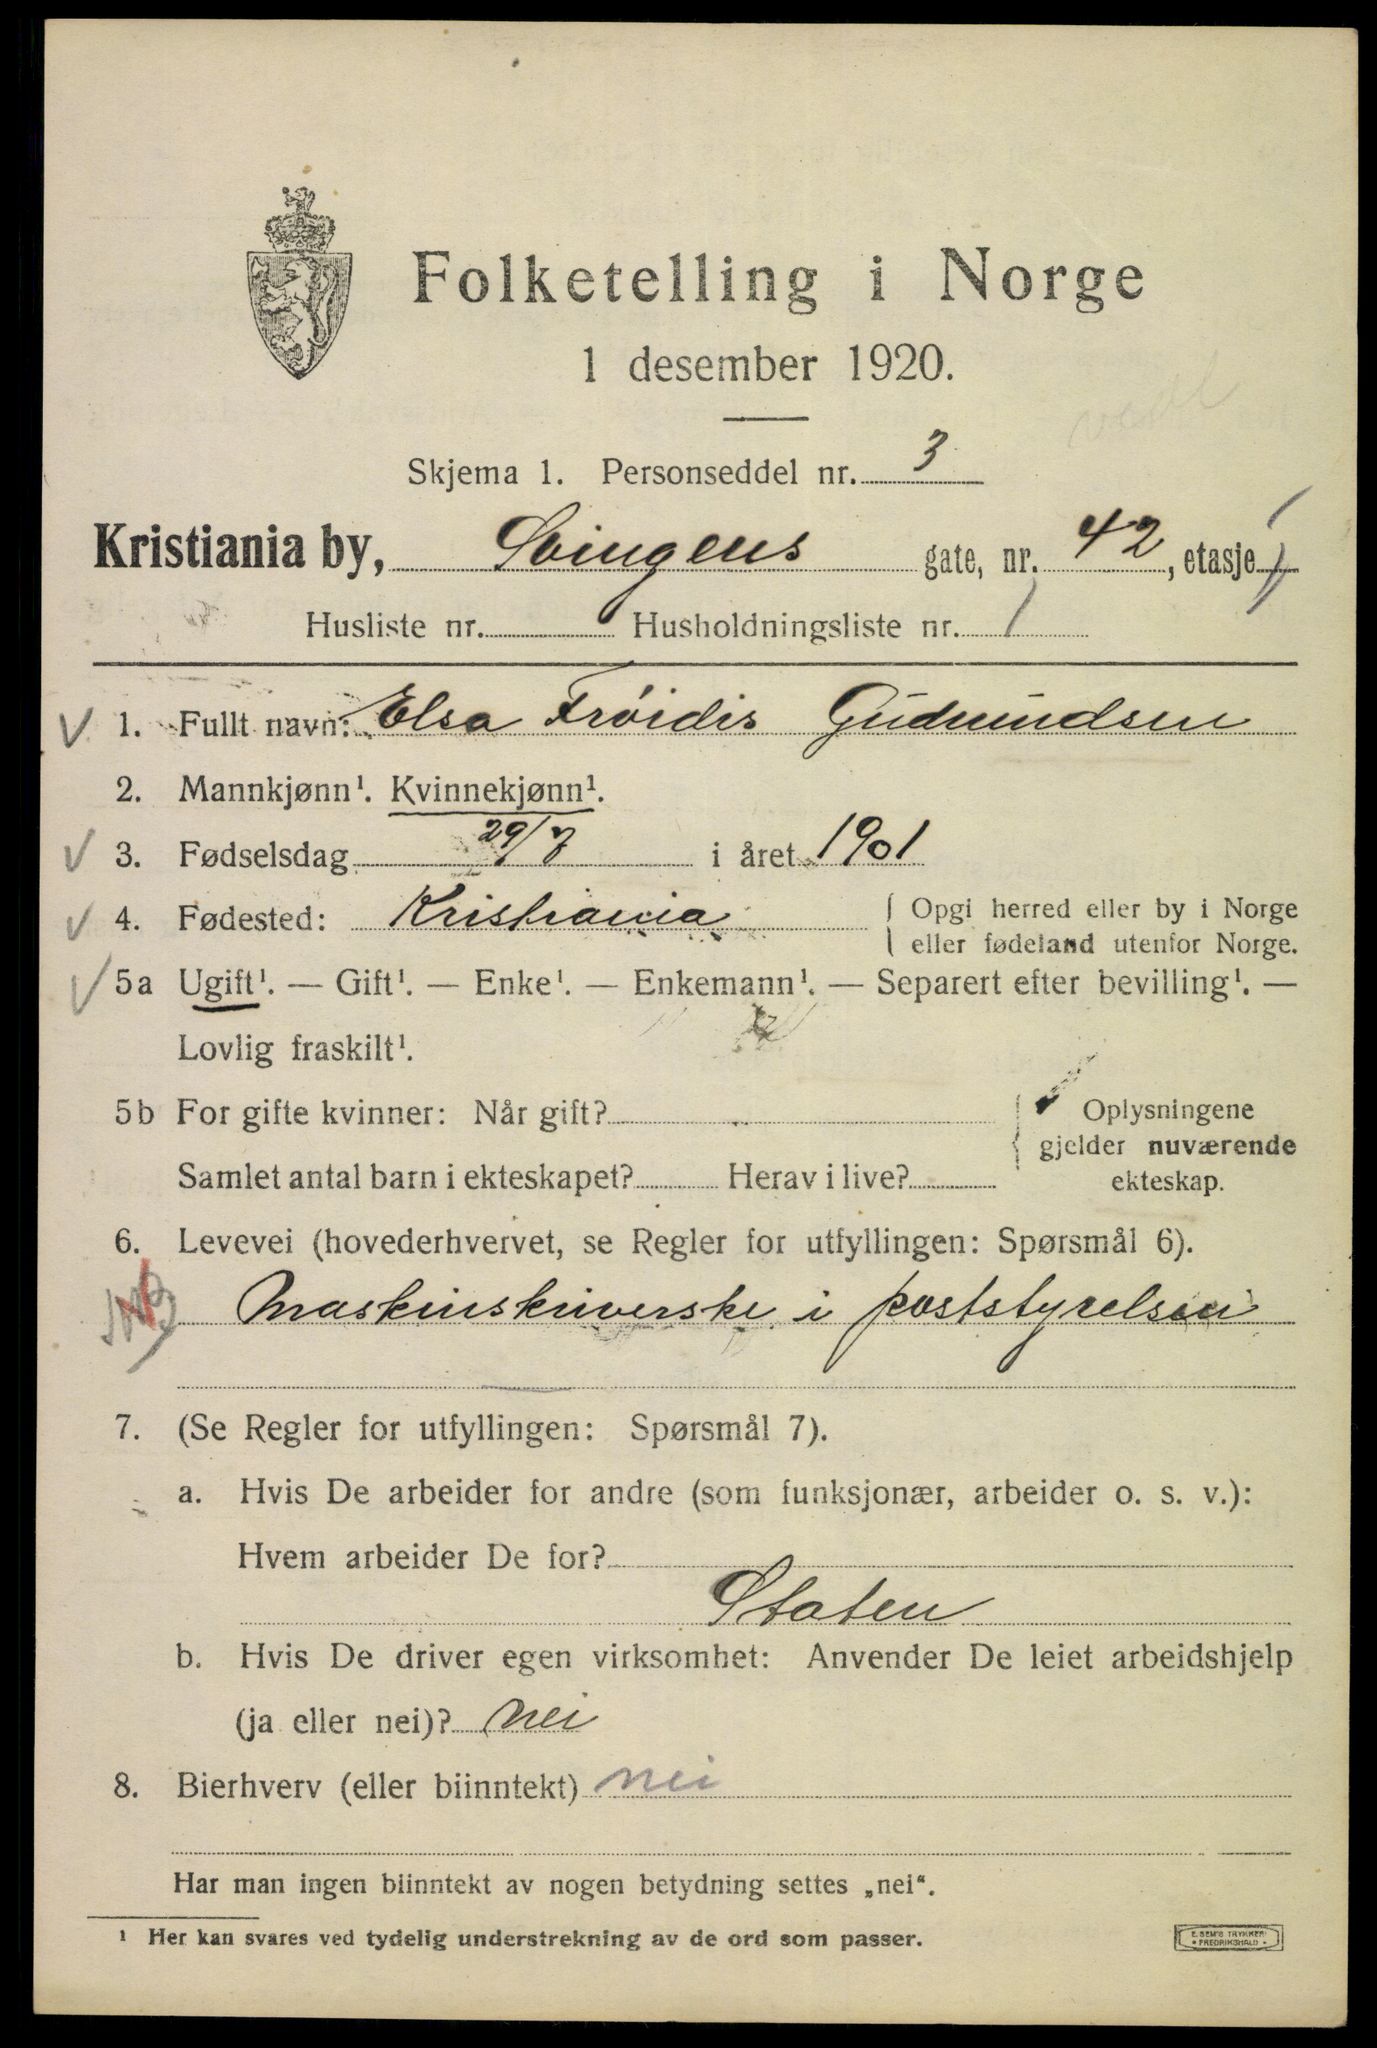 Folketelling i Norge
1 desember 1920.
Skjema 1. Personseddel nr. 3
Kristiania by, Svingens gate, nr. 42, etasje 1
Husliste nr. Husholdningsliste nr. 1
1. Fullt navn: Elsa Fröidis Gudmundsen
2. Mannkjønn¹. Kvinnekjønn¹.
3. Fødselsdag 29/7 i året 1901
4. Fødested: Kristiania { Opgi herred eller by i Norge
eller fødeland utenfor Norge.
5a Ugift¹. — Gift¹. — Enke¹. — Enkemann¹. — Separert efter bevilling¹. —
Lovlig fraskilt¹.
5b For gifte kvinner: Når gift? { Oplysningene
gjelder nuværende
Samlet antal barn i ekteskapet? Herav i live? ekteskap.
6. Levevei (hovederhvervet, se Regler for utfyllingen: Spørsmål 6).
Maskinskriverske i poststyrelsen
7. (Se Regler for utfyllingen: Spørsmål 7).
a. Hvis De arbeider for andre (som funksjonær, arbeider o. s. v.):
Hvem arbeider De for?
Staten
b. Hvis De driver egen virksomhet: Anvender De leiet arbeidshjelp
(ja eller nei)? nei
8. Bierhverv (eller biinntekt) nei
Har man ingen biinntekt av nogen betydning settes „nei“.
¹ Her kan svares ved tydelig understrekning av de ord som passer.
E. SEM'S TRYKKERI
• FREDRIKSHALD •